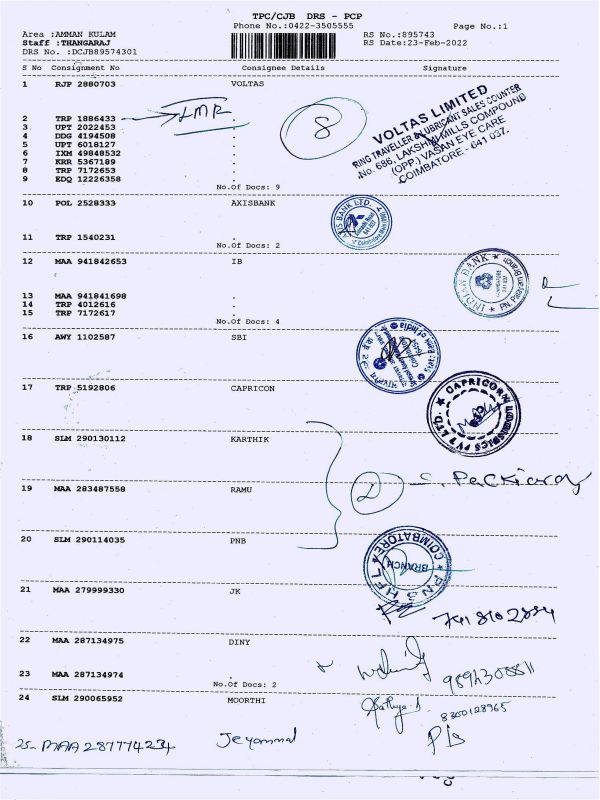 TPC/CJB DRS - PCP
Phone No.:0422-3505555
Page No.:1
Area :AMMAN KULAM
RS No.:895743
Staff :THANGARAJ
RS Date:23-Feb-2022
DRS No. :DCJB89574301
S No Consignment No Consignee Details Signature
1 RJP 2880703 VOLTAS
2 TRP 1886433 .
3 UPT 2022453 .
4 DDG 4194508 .
5 UPT 6018127 .
6 IXM 49848532 .
7 KRR 5367189 .
8 TRP 7172653 .
9 EDQ 12226358 .
No.Of Docs: 9
8
VOLTAS LIMITED
RING TRAVELLER & LUBRICANT SALES COUNTER
No. 686, LAKSHMI MILLS COMPOUND
(OPP.) VASAN EYE CARE
COIMBATORE - 641 037.
10 POL 2528333 AXISBANK
11 TRP 1540231 .
No.Of Docs: 2
AXIS BANK LTD.
12 MAA 941842653 IB
13 MAA 941841698 .
14 TRP 4012616 .
15 TRP 7172617 .
No.Of Docs: 4
INDIAN BANK
16 AWY 1102587 SBI
State Bank of India
17 TRP 5192806 CAPRICON
CAPRICORN LOGISTICS PVT LTD.
18 SLM 290130112 KARTHIK
19 MAA 283487558 RAMU
20 SLM 290114035 PNB
PNBHFL
COIMBATORE
BRANCH
21 MAA 279999330 JK
22 MAA 287134975 DINY
23 MAA 287134974 .
No.Of Docs: 2
9894308811
24 SLM 290065952 MOORTHI
8300128965
25- MAA 287777424 Jeyammal